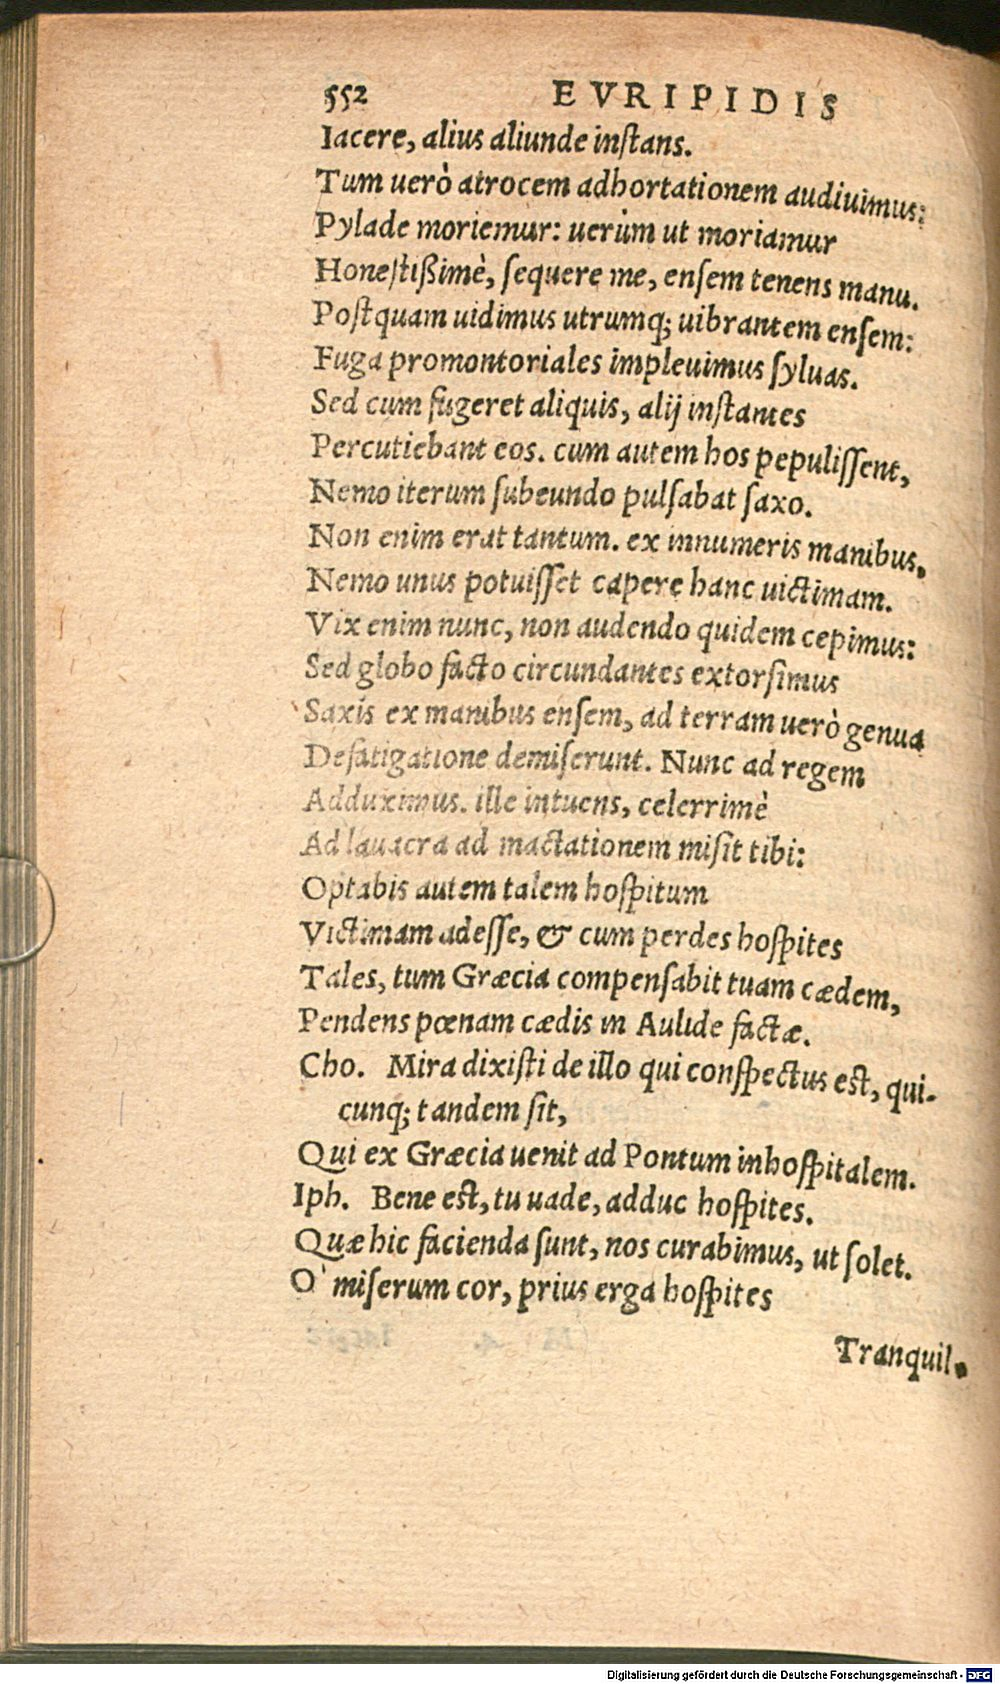 552 EVRIPIDIS
Iacere, alius aliunde inſtans.
Tum uerò atrocem adhortationem audiuimus:
Pylade moriemur: uerùm ut moriamur
Honeſtißimè, ſequere me, enſem tenens manu.
Poſtquam uidimus utrumq; uibrantem enſem:
Fuga promontoriales impleuimus ſyluas.
Sed cum fugeret aliquis, alij inſtantes
Percutiebant eos. cum autem hos pepuliſſent,
Nemo iterum ſubeundo pulſabat ſaxo.
Non enim erat tantum. ex innumeris manibus.
Nemo unus potuiſſet capere hanc uictimam.
Vix enim nunc, non audendo quidem cepimus:
Sed globo facto circundantes extorſimus
Saxis ex manibus enſem, ad terram uerò genua
Defatigatione demiſerunt. Nunc ad regem
Adduximus. ille intuens, celerrimè
Ad lauacra ad mactationem miſit tibi:
Optabis autem talem hoſpitum
Victimam adeſſe, & cum perdes hoſpites
Tales, tum Græcia compenſabit tuam cædem,
Pendens pœnam cædis in Aulide factæ.
Cho. Mira dixiſti de illo qui conſpectus est, qui-
cunq; tandem ſit,
Qui ex Græcia uenit ad Pontum inhoſpitalem.
Iph. Bene est, tu uade, adduc hoſpites.
Quæ hic facienda ſunt, nos curabimus, ut ſolet.
O' miſerum cor, prius erga hoſpites
Tranquil-
Digitalisierung gefördert durch die Deutsche Forschungsgemeinschaft - DFG